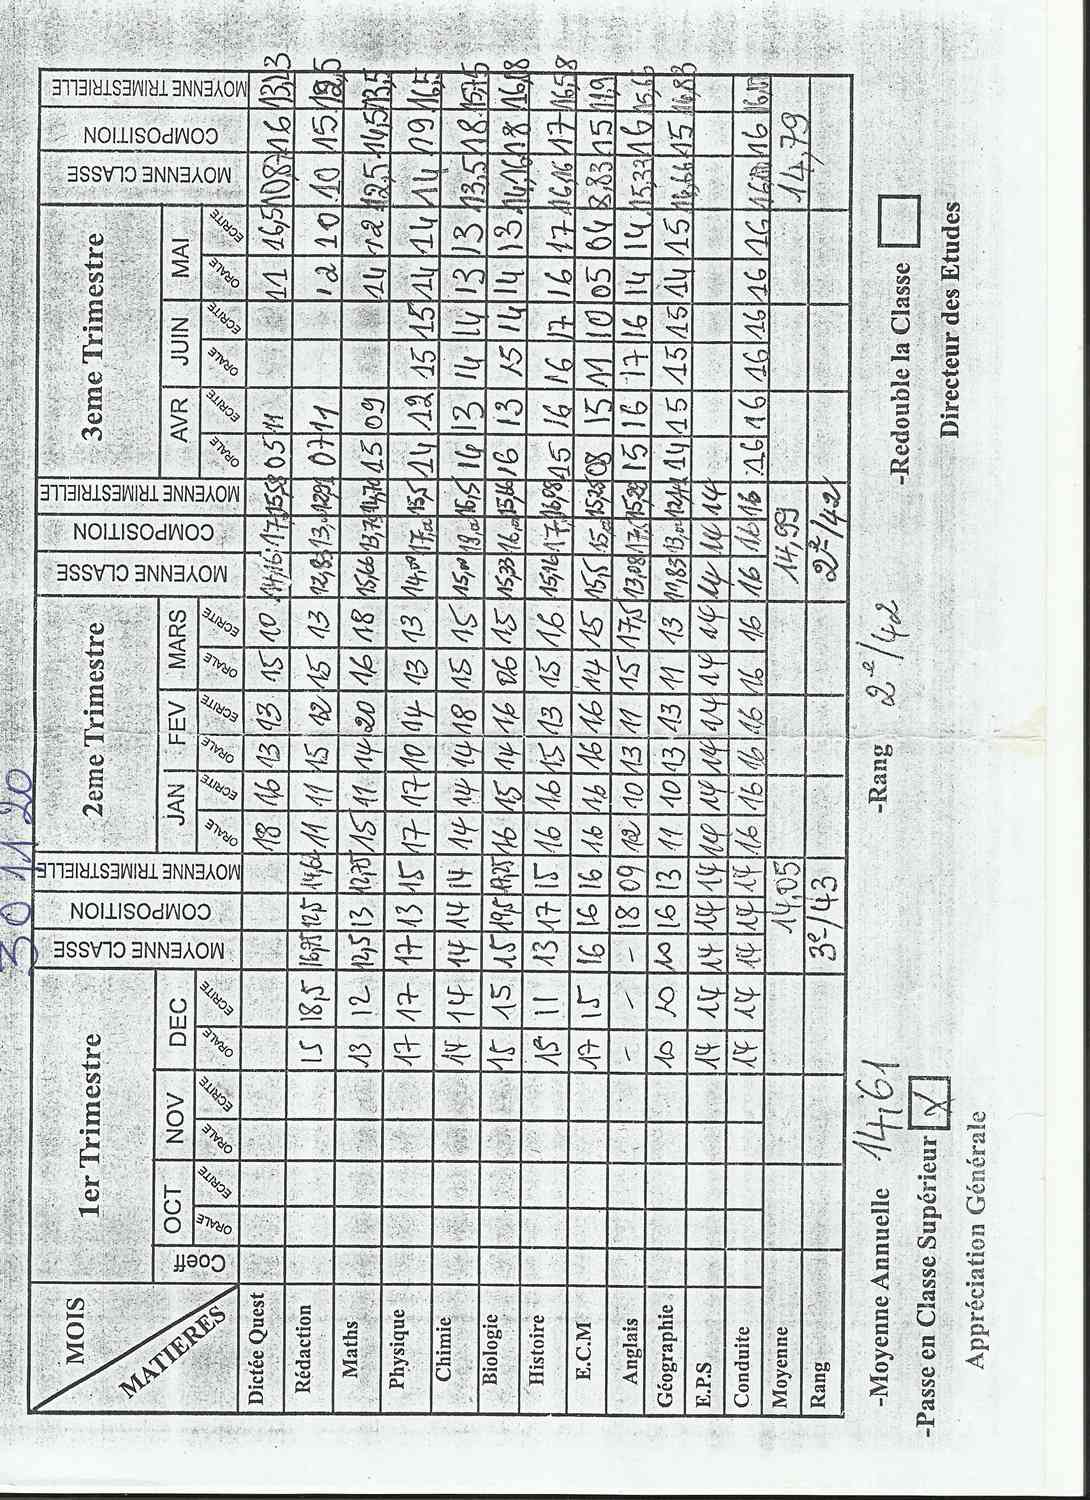 30 11 20
MOIS 1er Trimestre 2eme Trimestre 3eme Trimestre
MATIERES Coeff OCT NOV DEC MOYENNE CLASSE COMPOSITION MOYENNE TRIMESTRIELLE JAN FEV MARS MOYENNE CLASSE COMPOSITION MOYENNE TRIMESTRIELLE AVR JUIN MAI MOYENNE CLASSE COMPOSITION MOYENNE TRIMESTRIELLE
ORALE ECRITE ORALE ECRITE ORALE ECRITE ORALE ECRITE ORALE ECRITE ORALE ECRITE ORALE ECRITE ORALE ECRITE ORALE ECRITE
Dictée Quest 18 16 13 13 15 10 14,16 17 15,58 05 11 11 16,5 10,87 16 13,43
Rédaction 15 18,5 16,75 12,5 14,62 11 11 15 12 15 13 12,83 13 12,91 07 11 12 10 10 15 12,5
Maths 13 12 12,5 13 12,75 15 11 14 20 16 18 15,66 15 09 14 12 12,5 14,5 13,5
Physique 17 17 17 13 15 17 17 10 14 13 13 14 17 15,5 14 12 15 15 14 14 14 19 16,5
Chimie 14 14 14 14 14 14 14 14 18 15 15 15 16,5 14 13 14 14 13 13 13,5 18 15,75
Biologie 15 15 15 19,5 17,25 16 15 14 16 06 15 15,33 16 15,66 16 13 15 14 14 13 14,16 18 16,08
Histoire 15 11 13 17 15 16 16 15 13 15 16 15,16 17 16,08 15 16 16 17 16 17 16,16 17 16,58
E.C.M 17 15 16 16 16 16 16 16 16 14 15 15,5 15 15,25 08 15 11 10 05 04 8,83 15 11,9
Anglais - - - 18 09 12 10 13 11 15 17,5 13,08 17 15 16 17 16 14 14 15,33 16 15,66
Géographie 10 10 10 16 13 11 10 13 13 11 13 11,83 13 14 15 15 15 14 15 14,66 15 14,83
E.P.S 14 14 14 14 14 14 14 14 14 14 14 14 14
Conduite 14 14 14 14 14 16 16 16 16 16 16 16 16 16 16 16 16 16 16 16 16 16
Moyenne 14,05 14,99 14,79
Rang 3e/43 2e/42
-Moyenne Annuelle 14,61 -Rang 2e/42
-Passe en Classe Supérieur X -Redouble la Classe
Appréciation Générale Directeur des Etudes